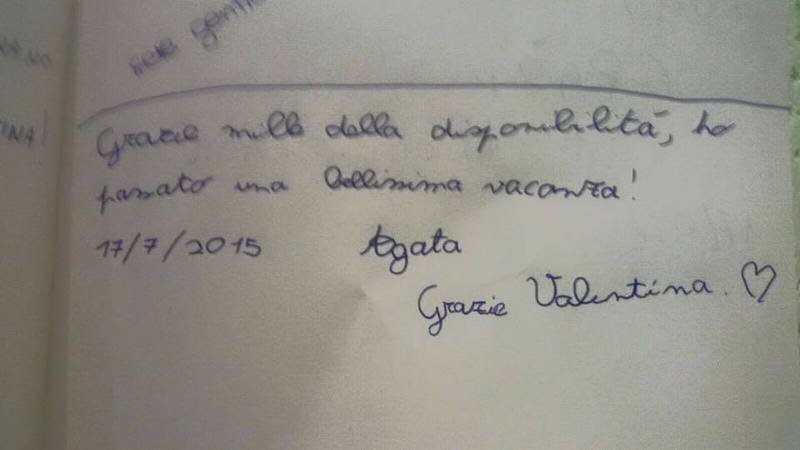 siete gentil
Grazie mille della disponibilità, ho
passato una bellissima vacanza!
17/7/2015 Agata
Grazie Valentina. ♡